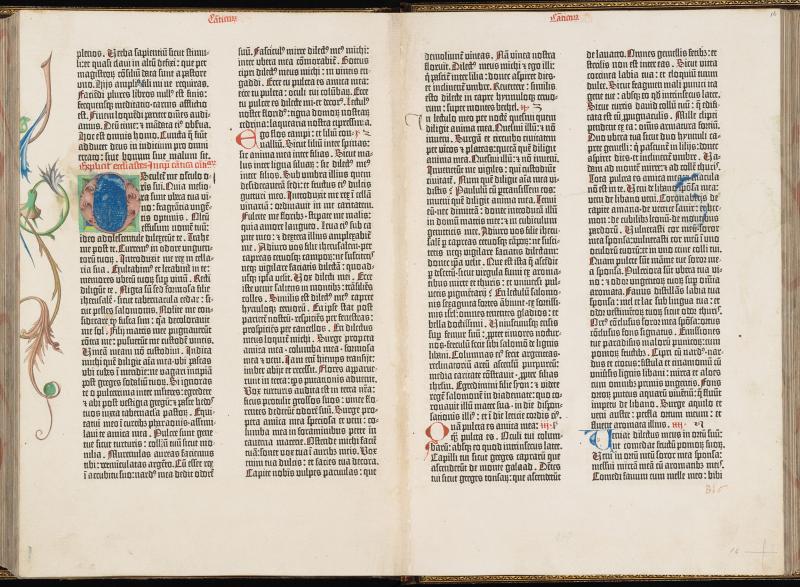 Cāticūm
plenos. Verba sapientiū sicut stimu-
li: et quasi clavi in altū defixi: que per
magistrorū cōsiliū data sunt a pastore
uno. Hijs amplius fili mi ne requiras.
Faciēdi plures libros nullus est finis:
frequensqʒ meditatio carnis afflictio
est. Finem loquēdi pariter omnes audi-
amus. Deū time: et mādata eius observa.
Hoc est omnis homo. Cuncta que fiūt
adducet deus in iudicium pro omni
errato: sive bonum sive malum sit.
Explicit ecclesiastes
Osculet me osculo o-
ris sui. Quia melio-
ra sunt ubera tua vi-
no: fragrātia unguē-
tis optimis. Oleū
effusum nomē tuū:
ideo adolescentule dilexerūt te. Trahe
me post te. Curremus in odorē unguen-
torū tuorū. Introduxit me rex in cella-
ria sua. Exultabimus et letabimur in te:
memores uberū tuorū sup vinū. Recti
diligūt te. Nigra sū sed formosa filie
iherusalē: sicut tabernacula cedar: si-
cut pelles salomonis. Nolite me con-
siderare quod fusca sim: quia decoloravit
me sol. Filij matris mee pugnaverūt
cōtra me: posuerūt me custodē in vineis.
Vineā meam nō custodivi. Indica
michi quē diligit aīa mea: ubi pascas
ubi cubes ī meridie: ne vagari incipiā
post greges sodaliū tuorū. Si ignoras
te o pulcerrima inter mulieres: egredere
et abi post vestigia gregū: et pasce hedos
tuos iuxta tabernacula pastorū. Equi-
tatui meo ī curribʒ pharaonis: assimi-
lavi te amica mea. Pulcre sunt gene
tue sicut turturis: collū tuū sicut mo-
nilia. Murenulas aureas faciemus
tibi: vermiculatas argēto. Cū esset rex
ī accubitu suo: nardus mea dedit odorē
suū. Fasciculus mirre dilectus meus michi:
inter ubera mea cōmorabit. Botrus
cipri dilectus meus michi: in vineis en-
gaddi. Ecce tu pulcra es amica mea:
ecce tu pulcra: oculi tui colūbarū. Ecce
tu pulcer es dilecte mi: et decorus. Lectulus
noster floridus: tigna domorū nostrarū
cedrina: laquearia nostra cipressina.
Ego flos campi: et liliū con-
valliū. Sicut liliū inter spinas:
sic amica mea inter filias. Sicut ma-
lus inter ligna silvarū: sic dilectus meus in-
ter filios. Sub umbra illius quem
desideraverā sedi: et fructus eius dulcis
gutturi meo. Introduxit me rex ī cellā
vinariā: ordinavit in me caritatem.
Fulcite me floribʒ: stipate me malis:
quia amore langueo. Leva eius sub ca-
pite meo: et dextera illius amplexabit
me. Adiuro vos filie iherusalem: per
capreas cervosqʒ camporū: ne suscitetis
neqʒ vigilare faciatis dilectā: quoad-
usqʒ ipsa velit. Vox dilecti mei. Ecce
iste venit saliens in montibʒ: trāsiliēs
colles. Similis est dilectus meus capree
hynuloqʒ cervorū. En ipse stat post
parietē nostrū: respiciēs per fenestras:
prospiciēs per cancellos. En dilectus
meus loquit michi. Surge propera
amica mea: columba mea: formosa
mea et veni. Iam enī hyemps transijt:
imber abijt et recessit. Flores apparue-
runt in terra: tps putationis advenit.
Vox turturis audita est in terra nrā:
ficus protulit grossos suos: vinee flo-
rentes dederūt odorē suū. Surge pro-
pera amica mea speciosa et veni: co-
lumba mea in foraminibus petre in
caverna macerie. Ostende michi faciē
tuā: sonet vox tua ī auribʒ meis. Vox
enim tua dulcis: et facies tua decora.
Capite nobis vulpes parvulas: que
Cāticūm
demoliunt vineas. Nā vinea nostra
floruit. Dilectus meus michi et ego illi:
qui pascit inter lilia: donec aspiret dies
et inclinent umbre. Revertere: similis
esto dilecte mi capree hynuloqʒ cervo-
rum: super montes bethel.
In lectulo meo per noctes quesivi quem
diligit anima mea. Quesivi illū: et nō
inveni. Surgā et circuibo civitatem
per vicos et plateas: querā quē diligit
anima mea. Quesivi illū: et nō inveni.
Invenerūt me vigiles: qui custodiūt
civitatē. Num quē diligit aīa mea vi-
distis? Paululū cū pertransissem eos:
inveni quē diligit anima mea. Tenui
eū: nec dimittā: donec introducā illū
in domū matris mee: et in cubiculum
genetricis mee. Adiuro vos filie iheru-
salē per capreas cervosqʒ cāporū: ne sus-
citetis neqʒ vigilare faciatis dilectam:
donec ipsa velit. Que est ista que ascēdit
per desertū: sicut virgula fumi ex aroma-
tibus mirre et thuris: et universi pul-
veris pigmētarij? En lectulū salomo-
nis sexaginta fortes ābiunt: ex fortissi-
mis isrl: omnes tenentes gladios: et ad
bella doctissimi. Uniuscuiusqʒ ensis
sup femur suū: propter timores noctur-
nos. Ferculū fecit sibi salomō de lignis
libani. Columnas eius fecit argenteas:
reclinatoriū aureū ascensū purpureū:
media caritate cōstravit: propter filias
iherusalem. Egredimini filie syon: et videte
regē salomonē in diademate: quo co-
ronavit illū mater sua: in die dispon-
sationis illius: et ī die leticie cordis eius.
Quā pulcra es amica mea:
quā pulcra es. Oculi tui colum-
barū: absqʒ eo quod intrinsecus latet.
Capilli tui sicut greges caprarū que
ascenderūt de monte galaad. Dētes
tui sicut greges tonsarū: que ascenderūt
de lavacro. Omnes gemellis fetibʒ: et
sterilis non est inter eas. Sicut vitta
coccinea labia tua: et eloquiū tuum
dulce. Sicut fragmen mali punici ita
gene tue: absqʒ eo quod intrinsecus latet.
Sicut turris david collū tuū: que edifi-
cata est cū propugnaculis. Mille clipei
pendent ex ea: omnis armatura fortiū.
Duo ubera tua sicut duo hynuli ca-
pree gemelli: qui pascunt in lilijs: donec
aspiret dies et inclinent umbre. Va-
dam ad montē mirre: et ad collē thuris.
Tota pulcra es amica mea: et macula
nō est in te. Veni de libano sponsa mea:
veni de libano veni. Coronaberis de
capite amana: de vertice sanir et her-
mon: de cubilibʒ leonū: de montibus
pardorū. Vulnerasti cor meū soror
mea sponsa: vulnerasti cor meū ī uno
oculorū tuorū: et in uno crine colli tui.
Quam pulcre sūt māme tue soror me-
a sponsa. Pulcriora sūt ubera tua vi-
no: et odor unguentorū tuorū sup omnia
aromata. Favus distillās labia tua
sponsa: mel et lac sub lingua tua: et o-
dor vestimētorū tuorū: sicut odor thuris.
Ortus cōclusus soror mea spōsa: ortus
cōclusus fons signatus. Emissiones
tue paradisus malorū punicorū: cum
pomorū fructibʒ. Cipri cū nardo: nar-
dus et crocus: fistula et cinamomū cū
universis lignis libani: mirra et aloes
cum omnibʒ primis unguentis. Fons
ortorū: puteus aquarū vivētiū: que fluūt
impetu de libano. Surge aquilo et
veni auster: perfla ortum meum: et
fluent aromata illius.
Veniat dilectus meus in ortū suū:
ut comedat fructū pomorū suorū.
Veni in ortū meū soror mea sponsa:
messui mirrā meā cū aromatibʒ meis.
Comedi favum cum melle meo: bibi